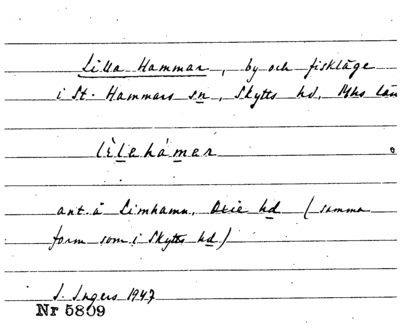 Lilla Hammar, by och fiskläge
i St. Hammars sn, Skytts hd, Mhs län
lìlahámar
ant. å Limhamn, Oxie hd (samma
form som i Skytts hd)
I. Ingers 1947
Nr 5809